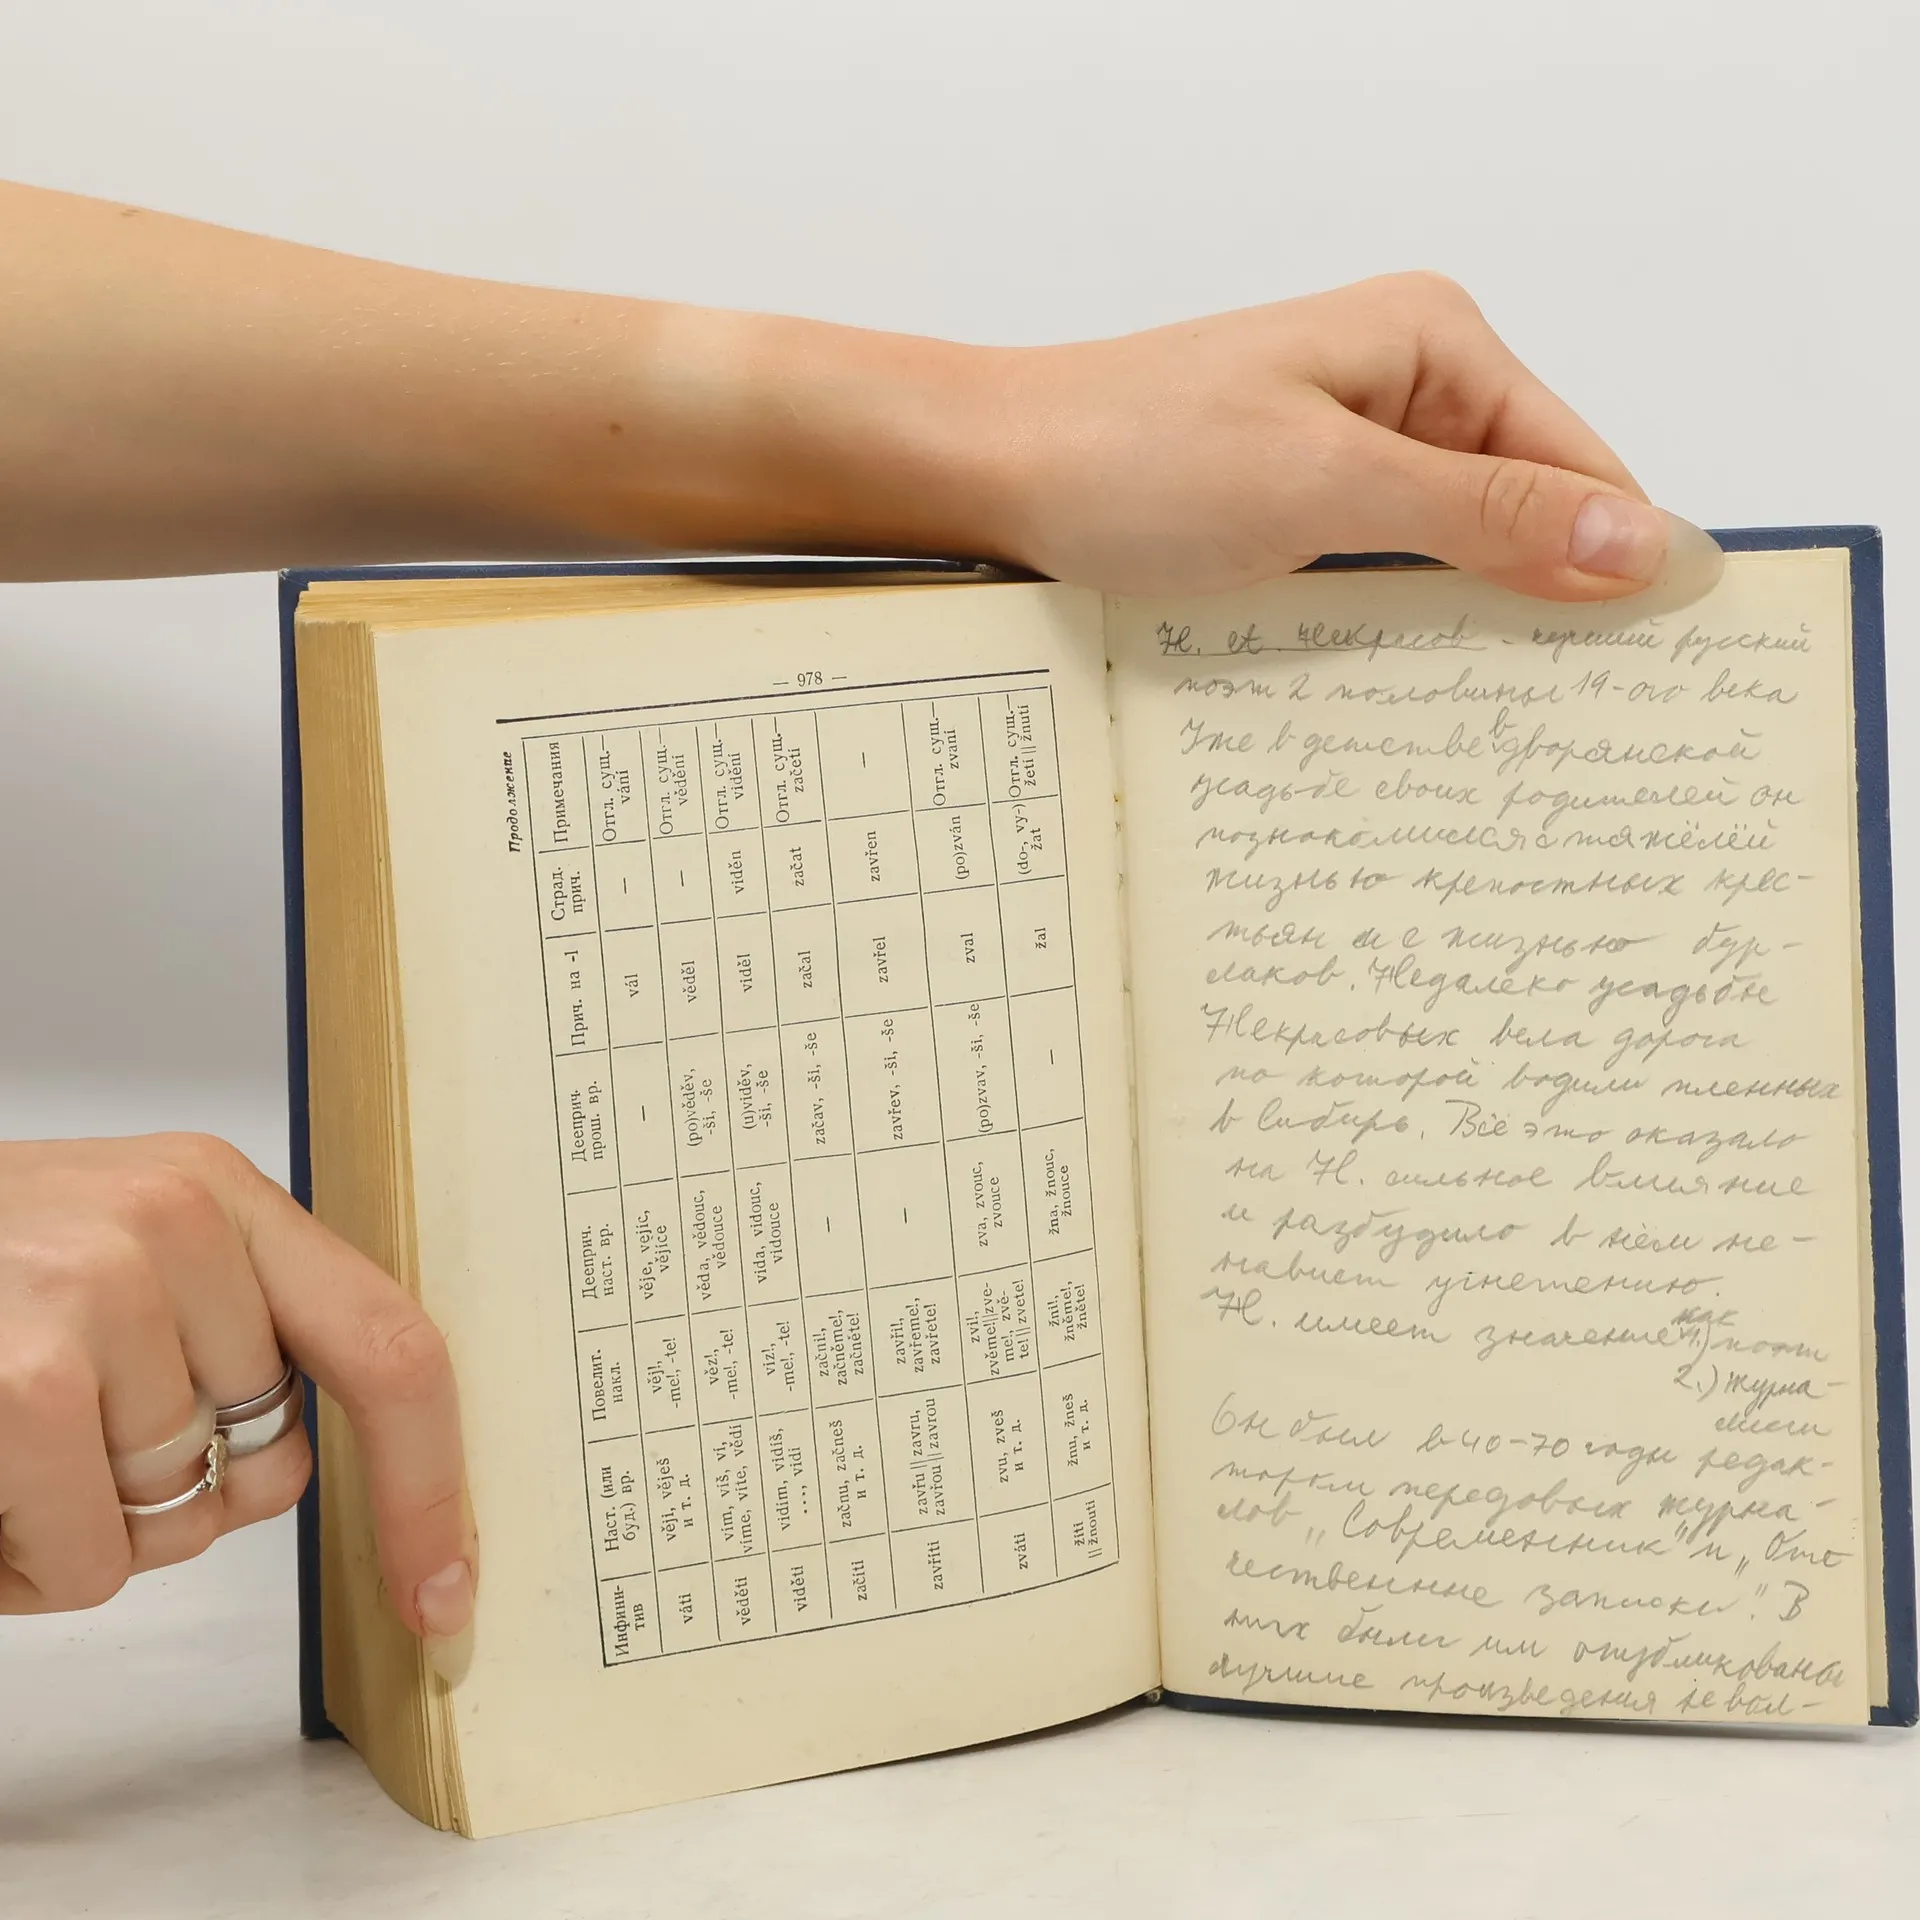 — 978 —
Продолжение
Инфинитив | Наст. (или буд.) вр. | Повелит. накл. | Дееприч. наст. вр. | Дееприч. прош. вр. | Прич. на -l | Страд. прич. | Примечания
váti | věji, věješ и т. д. | věj!, -me!, -te! | věje, vějíc, vějíce | — | vál | — | Отгл. сущ.— vání
věděti | vím, víš, ví, víme, víte, vědí | věz!, -me!, -te! | věda, vědouc, vědouce | (po)věděv, -ši, -še | věděl | — | Отгл. сущ.— vědění
viděti | vidím, vidíš, ..., vidí | viz!, -me!, -te! | vida, vidouc, vidouce | (u)viděv, -ši, -še | viděl | viděn | Отгл. сущ.— vidění
začíti | začnu, začneš и т. д. | začni!, začněme!, začněte! | — | začav, -ši, -še | začal | začat | Отгл. сущ.— početí
zavříti | zavřu || zavru, zavřou || zavrou | zavři!, zavřeme!, zavřete! | — | zavřev, -ši, -še | zavřel | zavřen | —
zváti | zvu, zveš и т. д. | zvi!, zvěme!||zveme!, zvěte!||zvete! | zva, zvouc, zvouce | (po)zvav, -ši, -še | zval | (po)zván | Отгл. сущ.— zvaní
žíti || žnouti | žnu, žneš и т. д. | žni!, žněme!, žněte! | žna, žnouc, žnouce | — | žal | (do-, vy-) žat | Отгл. сущ.— žetí || žnutí
Н. А. Некрасов - лучший русский
поэт 2 половины 19-ого века
Уже в детстве в дворянской
усадьбе своих родителей он
познакомился с тяжёлей
жизнью крепостных крес-
тьян и с жизнью бур-
лаков. Недалеко усадьбы
Некрасовых вела дорога
по которой водили пленных
в Сибирь. Всё это оказало
на Н. сильное влияние
и разбудило в нём не-
нависть угнетению.
Н. имеет значение как 1.) поэт
2.) журна-
лист
Он был в 40-70 годы редак-
тором передовых журна-
лов „Современник" и „Оте
чественные записки". В
них были им опубликованы
лучшие произведения